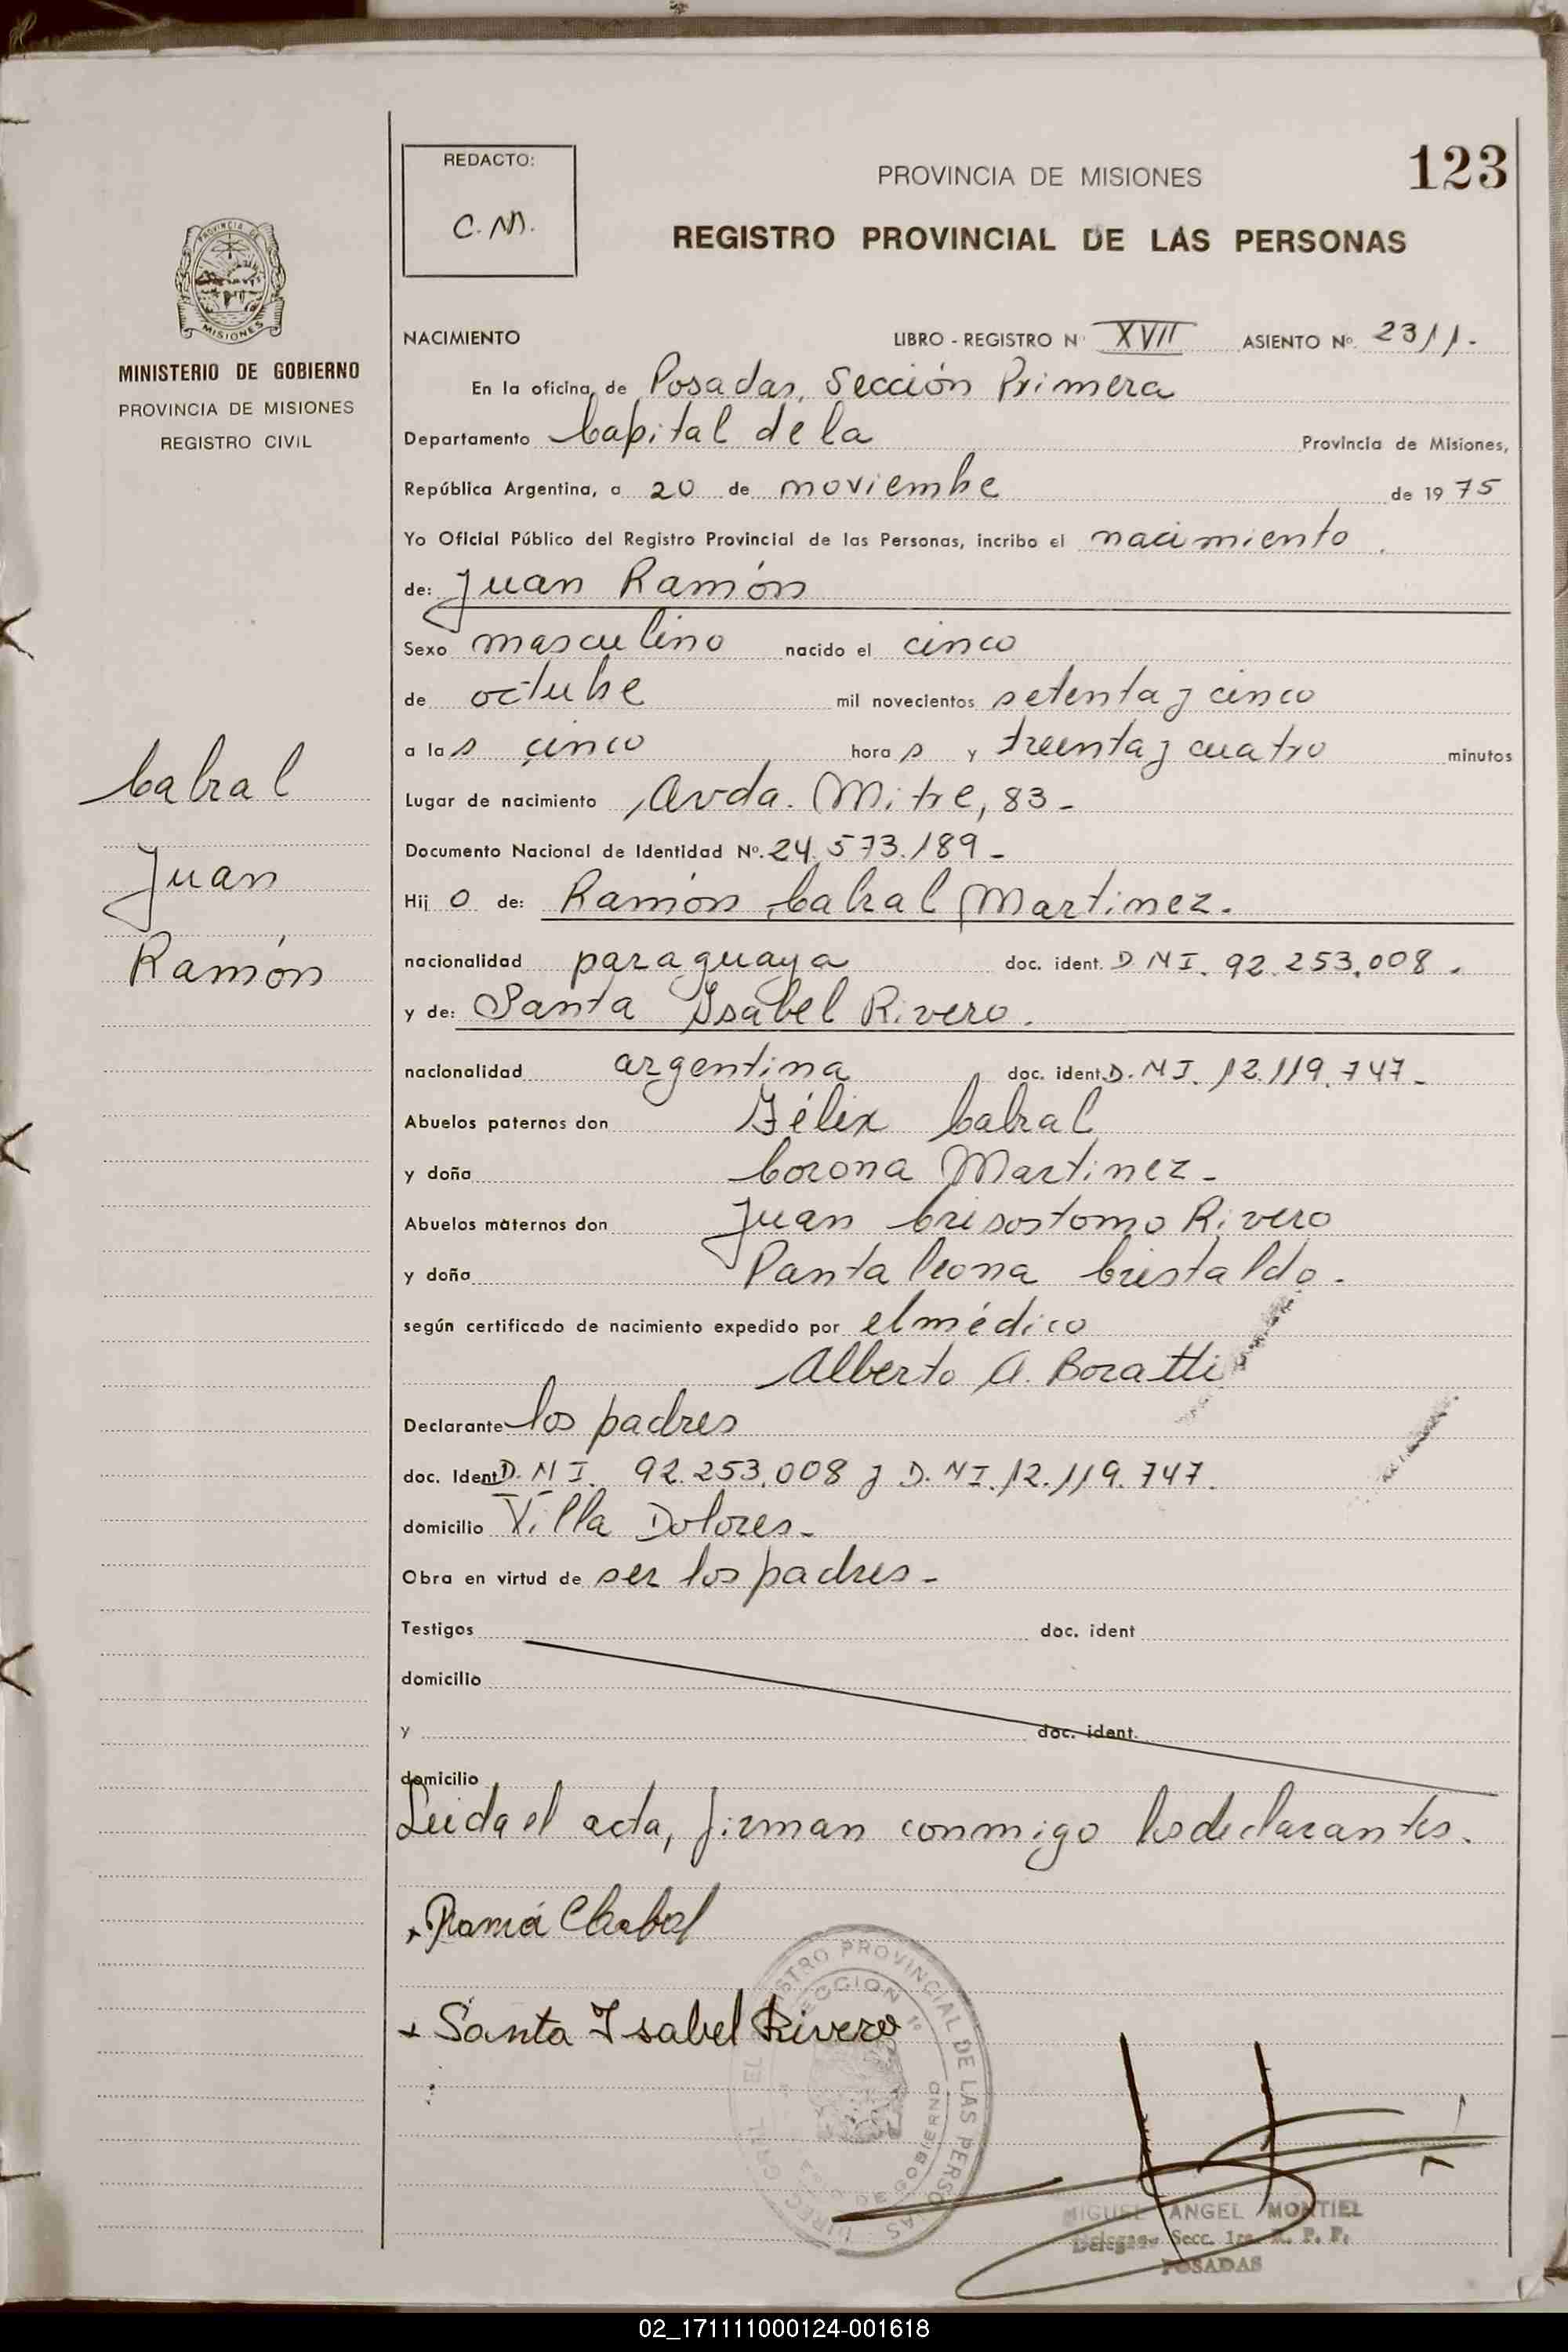 123
REDACTO:
C. M.
PROVINCIA DE MISIONES
REGISTRO PROVINCIAL DE LAS PERSONAS
PROVINCIA DE
MISIONES
MINISTERIO DE GOBIERNO
PROVINCIA DE MISIONES
REGISTRO CIVIL
Cabral
Juan
Ramón
NACIMIENTO LIBRO - REGISTRO N XVII ASIENTO Nº 2311.-
En la oficina de Posadas, Sección Primera
Departamento Capital de la Provincia de Misiones,
República Argentina, a 20 de noviembre de 1975
Yo Oficial Público del Registro Provincial de las Personas, incribo el nacimiento
de: Juan Ramón
Sexo masculino nacido el cinco
de octubre mil novecientos setenta y cinco
a las cinco horas y treinta y cuatro minutos
Lugar de nacimiento Avda. Mitre, 83-
Documento Nacional de Identidad Nº. 24.573.189-
Hijo de: Ramón Cabral Martinez.
nacionalidad paraguaya doc. ident. D N I. 92.253.008.
y de: Santa Isabel Rivero.
nacionalidad argentina doc. ident. D. N I. 12.119.747-
Abuelos paternos don Félix Cabral
y doña Corona Martinez-
Abuelos maternos don Juan Crisostomo Rivero
y doña Pantaleona Cristaldo.
según certificado de nacimiento expedido por el médico
Alberto A. Boratti
Declarante los padres
doc. Ident D. N I. 92.253.008 y D. N I. 12.119.747.
domicilio Villa Dolores-
Obra en virtud de ser los padres-
Testigos doc. ident
domicilio
y doc. ident.
domicilio
Leida el acta, firman conmigo los declarantes.
Santa Isabel Rivero
PROVINCIAL DE LAS PERSONAS
SECCION 1º
DE GOBIERNO
MIGUEL ANGEL MONTIEL
Secc. 1ra. R. P. P.
POSADAS
02_171111000124-001618